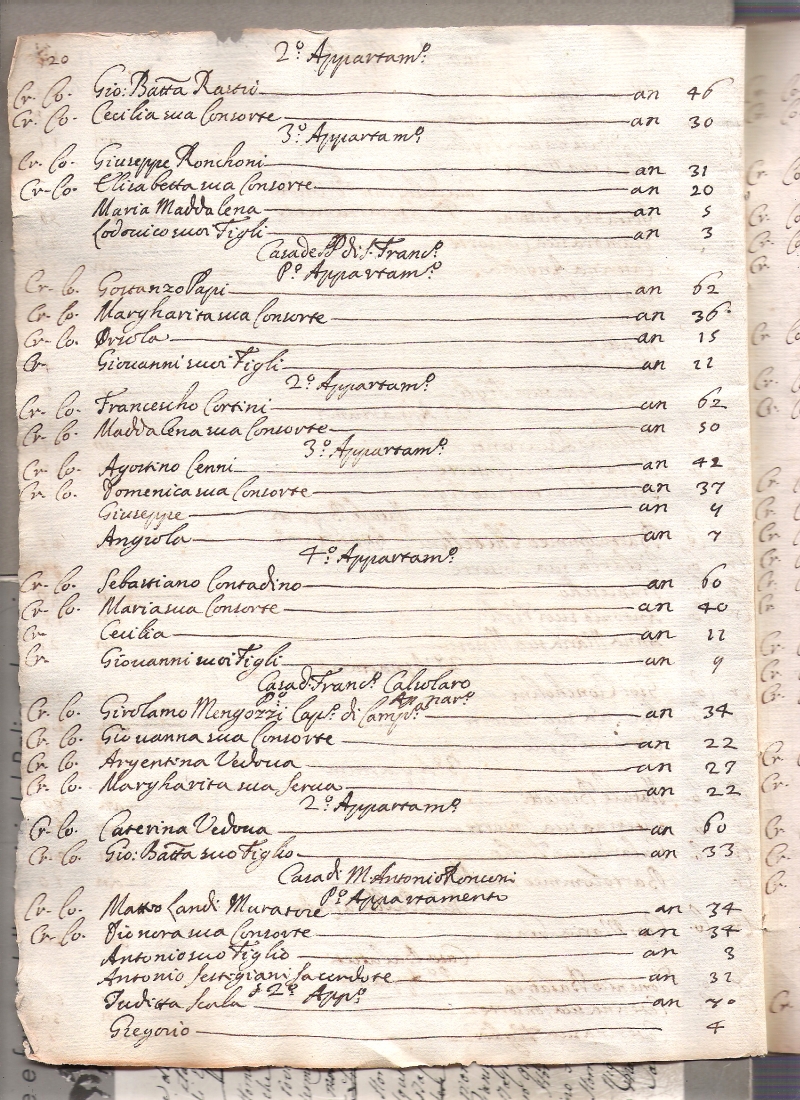 20
2º Appartamº:
Cr. Co. Gio: Batta Rastic an 46
Cr. Co. Cecilia sua Consorte an 30
3º Appartamº:
Cr. Co. Giuseppe Ronchoni an 31
Cr. Co. Elisabetta sua Consorte an 20
Maria Maddalena an 5
Lodovico suoi Figli an 3
Casa de PP. di S. Francº:
Pº Appartamº:
Cr. Co. Gostanzo Papi an 62
Cr. Co. Margharita sua Consorte an 36
Cr. Co. Orsola an 15
Cr. Giovanni suoi Figli an 11
2º Appartamº:
Cr. Co. Francescho Cortini an 62
Cr. Co. Maddalena sua Consorte an 50
3º Appartamº:
Cr. Co. Agostino Cenni an 42
Cr. Co. Domenica sua Consorte an 37
Giuseppe an 9
Angiola an 7
4º Appartamº:
Cr. Co. Sebastiano Contadino an 60
Cr. Co. Maria sua Consorte an 40
Cr. Cecilia an 11
Cr. Giovanni suoi Figli an 9
Casa d. Francº: Calsolaro
Pº Appartº
Cr. Co. Girolamo Mengozzi Capº: di Campª: an 34
Cr. Co. Giovanna sua Consorte an 22
Cr. Co. Argentina Vedova an 27
Cr. Co. Margharita sua Serva an 22
2º Appartamº:
Cr. Co. Caterina Vedova an 60
Cr. Co. Gio: Batta suo Figlio an 33
Casa di M. Antonio Ronconi
Pº Appartamento
Cr. Co. Matteo Landi Muratore an 34
Cr. Co. Dionora sua Consorte an 34
Antonio suo Figlio an 3
Antonio Sestigiani Sacerdote an 32
2º Appº:
Juditta Scala an 70
Gregorio 4